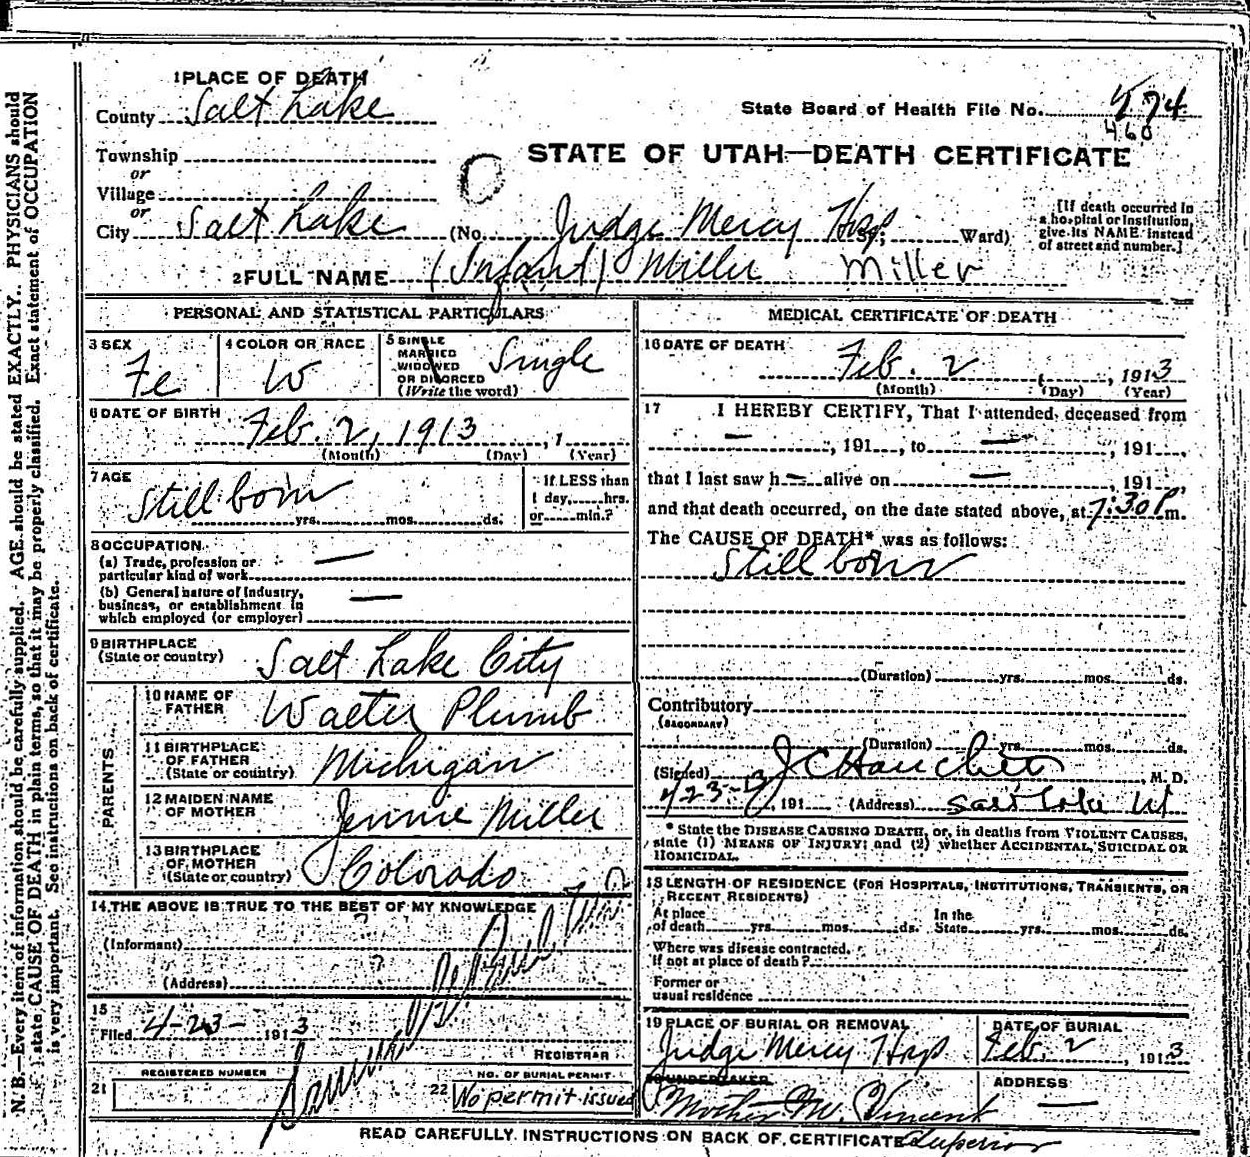 1 PLACE OF DEATH
County Salt Lake
State Board of Health File No. 474
460
Township
or
Village
or
STATE OF UTAH—DEATH CERTIFICATE
City Salt Lake (No. Judge Mercy Hosp St; Ward)
[If death occurred in
a hospital or institution,
give its NAME instead
of street and number.]
2 FULL NAME (Infant) Miller Miller
PERSONAL AND STATISTICAL PARTICULARS
3 SEX
Fe
4 COLOR OR RACE
W
5 SINGLE
MARRIED
WIDOWED
OR DIVORCED
(Write the word)
Single
6 DATE OF BIRTH
Feb. 2, 1913, 1
(Month) (Day) (Year)
7 AGE
Stillborn
yrs. mos. ds.
If LESS than
1 day, hrs.
or min.?
8 OCCUPATION
(a) Trade, profession or
particular kind of work —
(b) General nature of Industry,
business, or establishment in
which employed (or employer) —
9 BIRTHPLACE
(State or country) Salt Lake City
PARENTS
10 NAME OF
FATHER Walter Plumb
11 BIRTHPLACE
OF FATHER
(State or country) Michigan
12 MAIDEN NAME
OF MOTHER Jennie Miller
13 BIRTHPLACE
OF MOTHER
(State or country) Colorado
14 THE ABOVE IS TRUE TO THE BEST OF MY KNOWLEDGE
(Informant) ?
(Address) ?
15
Filed 4-23- 1913
REGISTRAR
REGISTERED NUMBER
21
NO. OF BURIAL PERMIT
22 No permit issued
MEDICAL CERTIFICATE OF DEATH
16 DATE OF DEATH
Feb. 2, 1913
(Month) (Day) (Year)
17 I HEREBY CERTIFY, That I attended deceased from
—, 191, to —, 191,
that I last saw h— alive on —, 191,
and that death occurred, on the date stated above, at 7:30 P m.
The CAUSE OF DEATH* was as follows:
Stillborn
(Duration) yrs. mos. ds.
Contributory
(SECONDARY)
(Duration) yrs. mos. ds.
(Signed) J C M. D.
4/23-3, 191 (Address) Salt Lake Ut
* State the DISEASE CAUSING DEATH, or, in deaths from VIOLENT CAUSES,
state (1) MEANS OF INJURY; and (2) whether ACCIDENTAL, SUICIDAL OR
HOMICIDAL.
18 LENGTH OF RESIDENCE (FOR HOSPITALS, INSTITUTIONS, TRANSIENTS, OR
RECENT RESIDENTS)
At place
of death yrs. mos. ds.
In the
State yrs. mos. ds.
Where was disease contracted,
If not at place of death?
Former or
usual residence
19 PLACE OF BURIAL OR REMOVAL
Judge Mercy Hosp
DATE OF BURIAL
Feb. 2, 1913
20 UNDERTAKER
Mother M. Vincent
Superior
ADDRESS
—
READ CAREFULLY INSTRUCTIONS ON BACK OF CERTIFICATE
N. B.—Every item of information should be carefully supplied. AGE should be stated EXACTLY. PHYSICIANS should
state CAUSE OF DEATH in plain terms, so that it may be properly classified. Exact statement of OCCUPATION
is very important. See instructions on back of certificate.